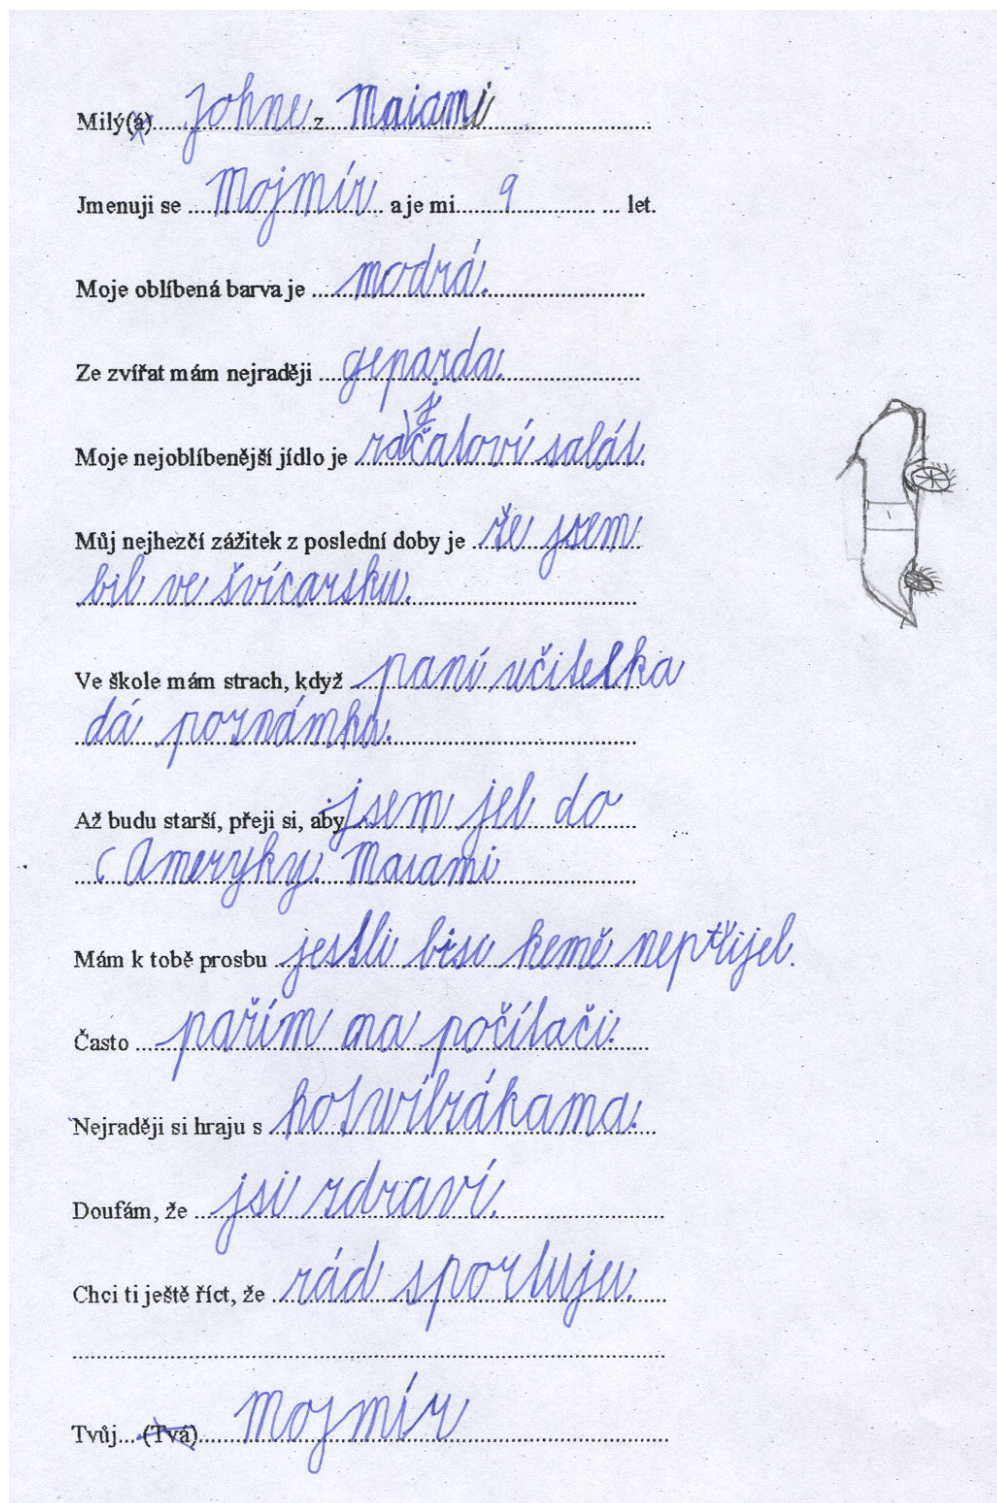 Milý(á) Johne z Maiami
Jmenuji se Mojmír a je mi 9 let.
Moje oblíbená barva je modrá.
Ze zvířat mám nejraději geparda.
Moje nejoblíbenější jídlo je rajčatoví salát.
Můj nejhezčí zážitek z poslední doby je že jsem
bil ve švícarsku.
Ve škole mám strach, když paní učitelka
dá poznámku.
Až budu starší, přeji si, aby jsem jel do
(Ameryky. Maiami
Mám k tobě prosbu jestli bisi kemě nepřijel.
Často pařím na počítači.
Nejraději si hraju s hotvílrákama.
Doufám, že jsi zdraví.
Chci ti ještě říct, že rád sportuju.
Tvůj... (Tvá) Mojmír